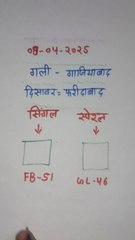 09-04-2025
गली - गाजियाबाद
दिसावर = फरीदाबाद
सिंगल स्पेशल
FB-51 GL-46